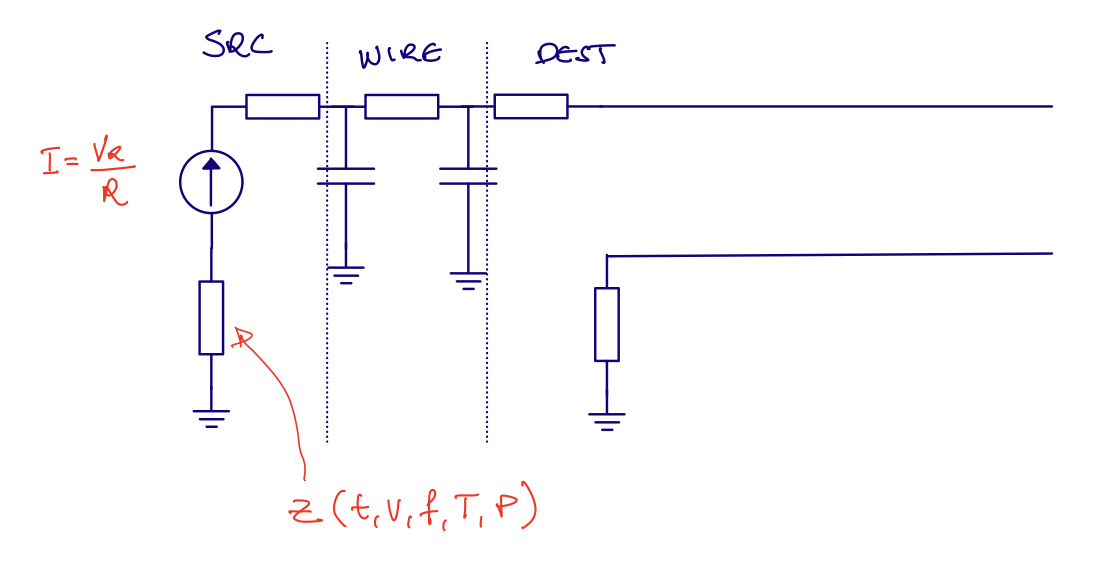 SRC
WIRE
DEST
I = VR / R
Z (t, V, f, T, P)